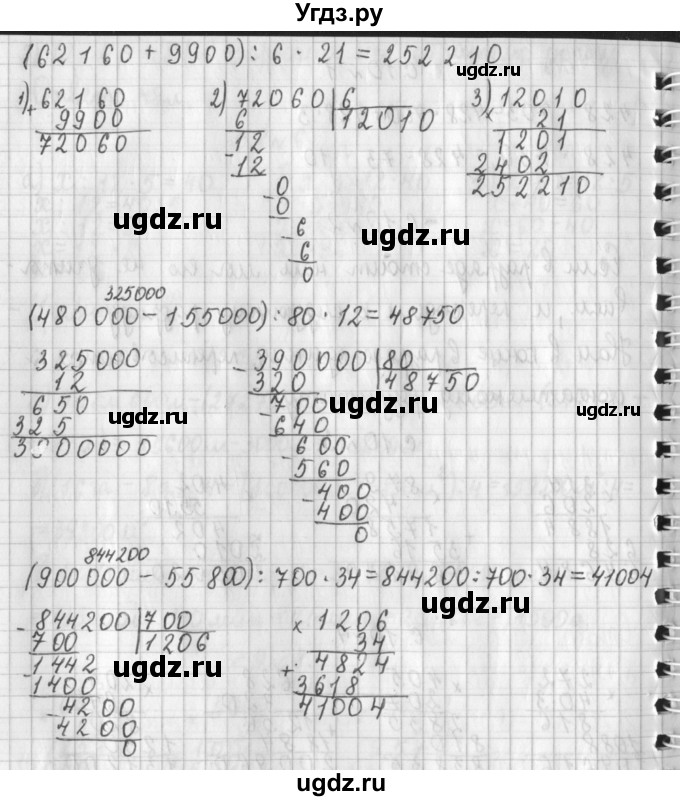 Угдз.ру
(62160 + 9900) : 6 · 21 = 252210
ugdz.ru
1) + 62160
9900
72060
2) 72060 6
6 12010
- 12
12
- 0
0
- 6
6
0
3) 12010
× 21
1201
2402
252210
ugdz.ru ugdz.ru
325000
(480000 - 155000) : 80 · 12 = 48750
325000
12
650
325
3900000
- 390000 80
320 48750
- 700
640
- 600
560
- 400
400
0
ugdz.ru ugdz.ru ugdz.ru
844200
(900000 - 55800) : 700 · 34 = 844200 : 700 · 34 = 41004
ugdz.ru
- 844200 700
700 1206
- 1442
1400
- 4200
4200
0
× 1206
34
+ 4824
3618
41004
ugdz.ru ugdz.ru
ugdz.ru